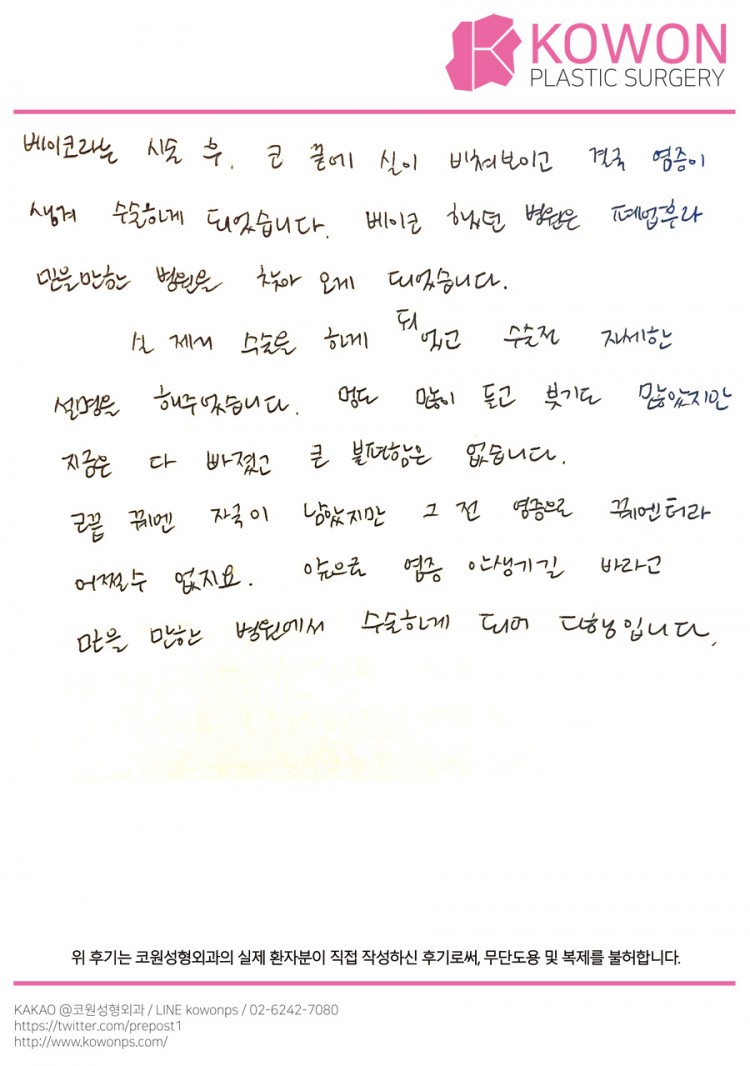 KOWON
PLASTIC SURGERY
베이코라는 시술 후. 코 끝에 실이 비쳐보이고 결국 염증이
생겨 수술하게 되었습니다. 베이코 했던 병원은 폐업후라
믿을만한 병원을 찾아 오게 되었습니다.
실 제거 수술을 하게 되었고 수술전 자세한
설명을 해주었습니다. 멍도 많이 들고 붓기도 많았지만
지금은 다 빠졌고 큰 불편함은 없습니다.
코끝 꿰멘 자국이 남았지만 그 전 염증으로 꿰멘터라
어쩔수 없지요. 앞으로 염증 안생기길 바라고
믿을 만한 병원에서 수술하게 되어 다행입니다.
위 후기는 코원성형외과의 실제 환자분이 직접 작성하신 후기로써, 무단도용 및 복제를 불허합니다.
KAKAO @코원성형외과 / LINE kowonps / 02-6242-7080
https://twitter.com/prepost1
http://www.kowonps.com/